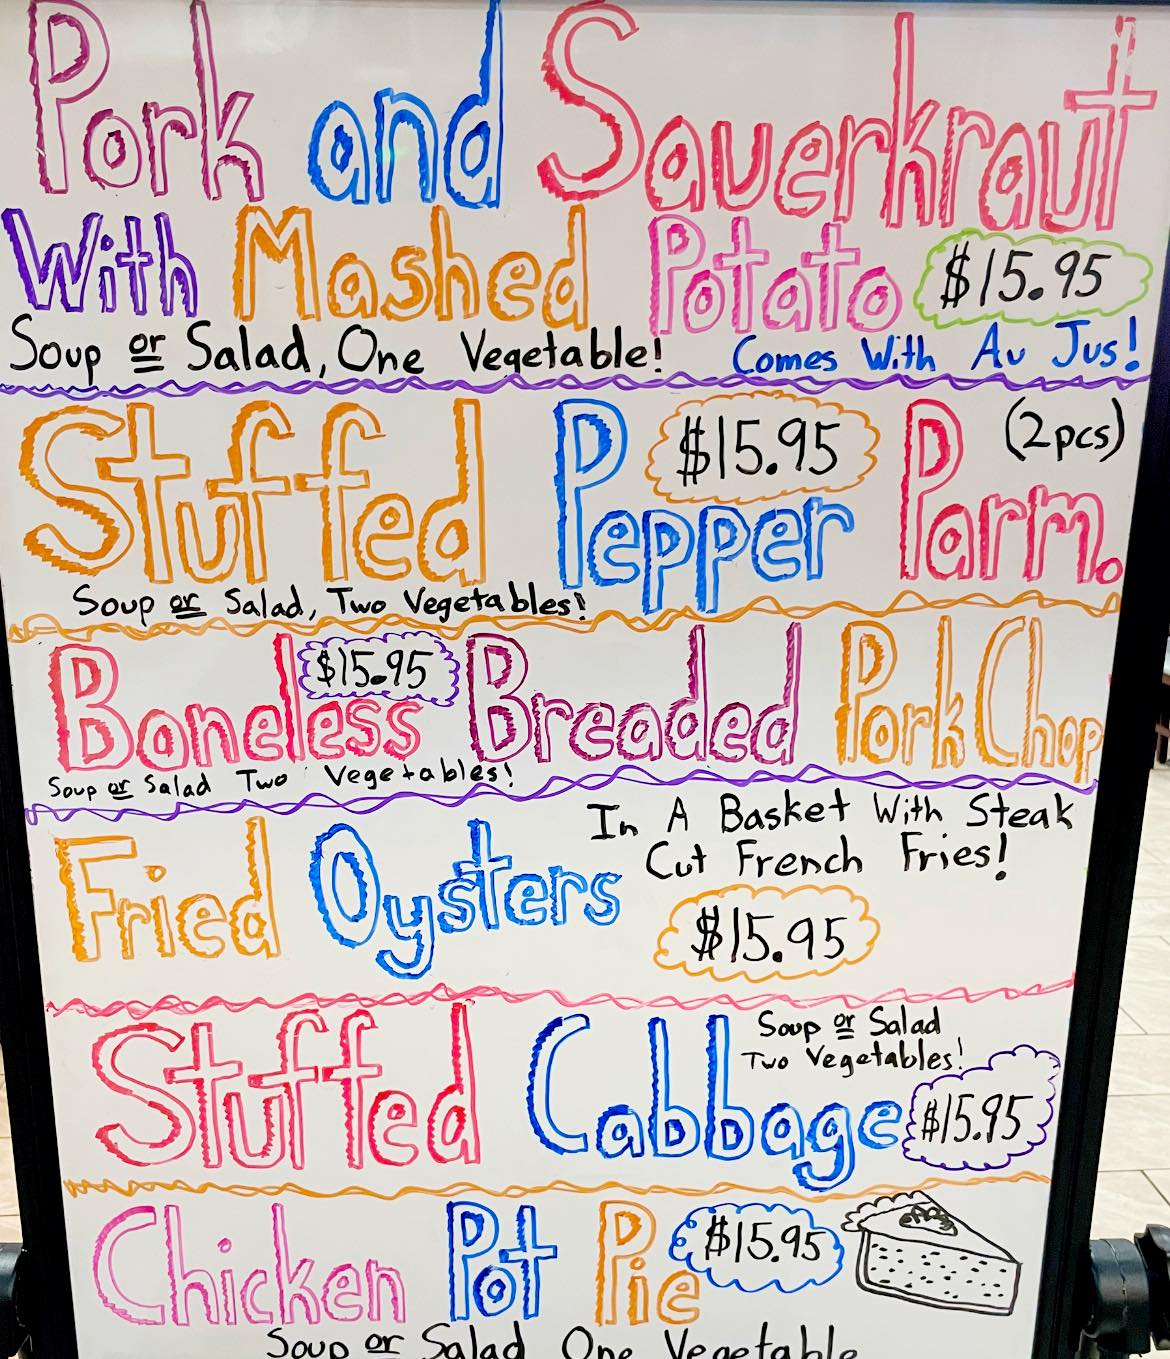 Pork and Sauerkraut
With Mashed Potato $15.95
Soup or Salad, One Vegetable! Comes With Au Jus!
Stuffed Pepper Parm. (2pcs)
$15.95
Soup or Salad, Two Vegetables!
Boneless Breaded Pork Chop
$15.95
Soup or Salad Two Vegetables!
Fried Oysters
In A Basket With Steak
Cut French Fries!
$15.95
Stuffed Cabbage
Soup or Salad
Two Vegetables!
$15.95
Chicken Pot Pie $15.95
Soup or Salad One Vegetable